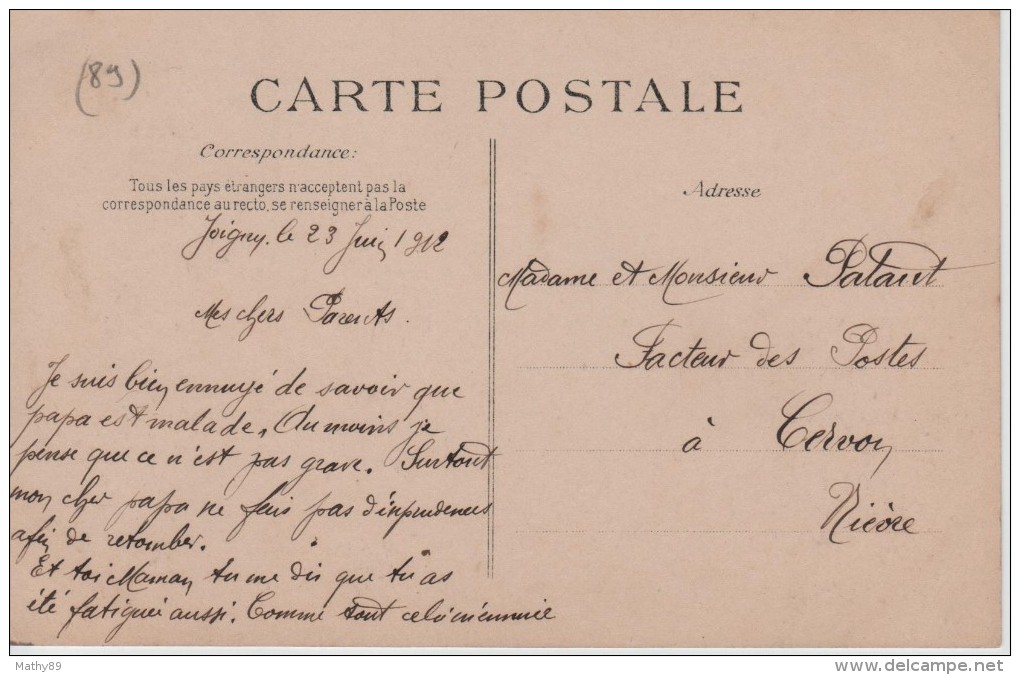 (89)
CARTE POSTALE
Correspondance:
Tous les pays étrangers n'acceptent pas la
correspondance au recto, se renseigner à la Poste
Adresse
Joigny, le 23 Juin 1912
Mes chers Parents.
Je suis bien ennuyé de savoir que
papa est malade, Au moins je
pense que ce n'est pas grave. Surtout
mon cher papa ne fais pas d'inprudences
afin de retomber.
Et toi Maman tu me dis que tu as
été fatiguée aussi. Comme tout cela m'ennuie
Madame et Monsieur Pataut
Facteur des Postes
à Cervon
Nièvre
Mathy89
www.delcampe.net